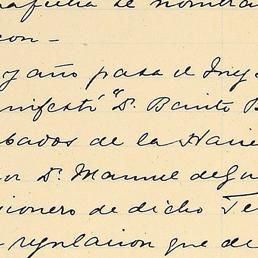 con -
y año pasa el Ing
anifestó "D. Benito B
bados de la Hacie
or D. Manuel de Gu
sionero de dicho Te
regulacion que de